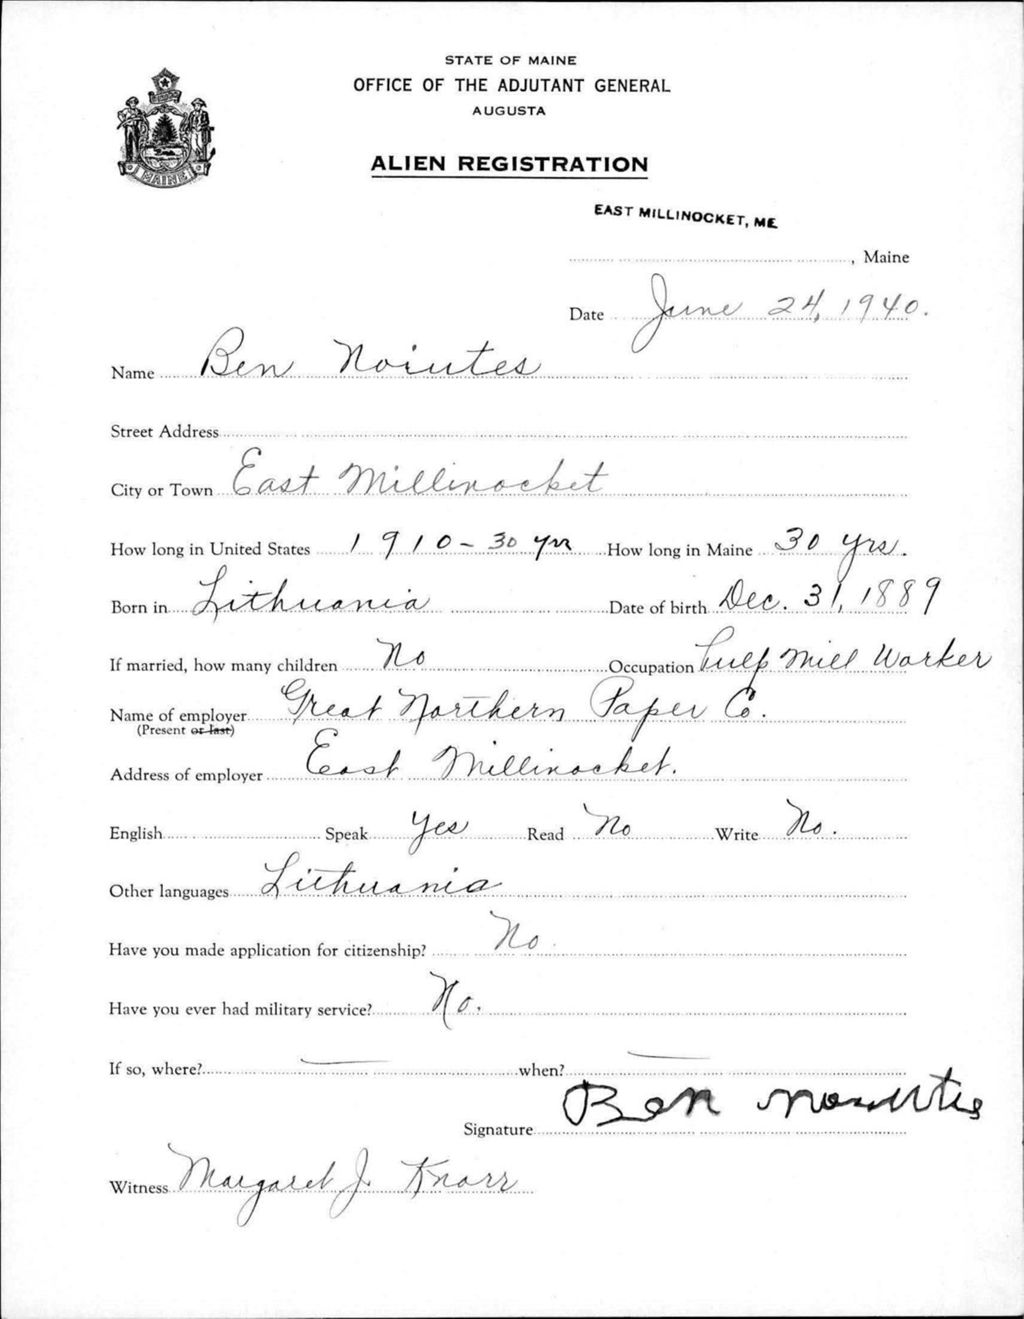 STATE OF MAINE
OFFICE OF THE ADJUTANT GENERAL
AUGUSTA
ALIEN REGISTRATION
MAINE
EAST MILLINOCKET, ME.
, Maine
Date June 24, 1940.
Name Ben Noiutes
Street Address
City or Town East Millinocket
How long in United States 1910 - 30 yrs How long in Maine 30 yrs.
Born in Lithuania Date of birth Dec. 31, 1889
If married, how many children No Occupation Pulp Mill Worker
Name of employer Great Northern Paper Co.
(Present or last)
Address of employer East Millinocket.
English Speak Yes Read No Write No.
Other languages Lithuania
Have you made application for citizenship? No.
Have you ever had military service? No.
If so, where? — when? —
Signature Ben
Witness Margaret J. Knarr